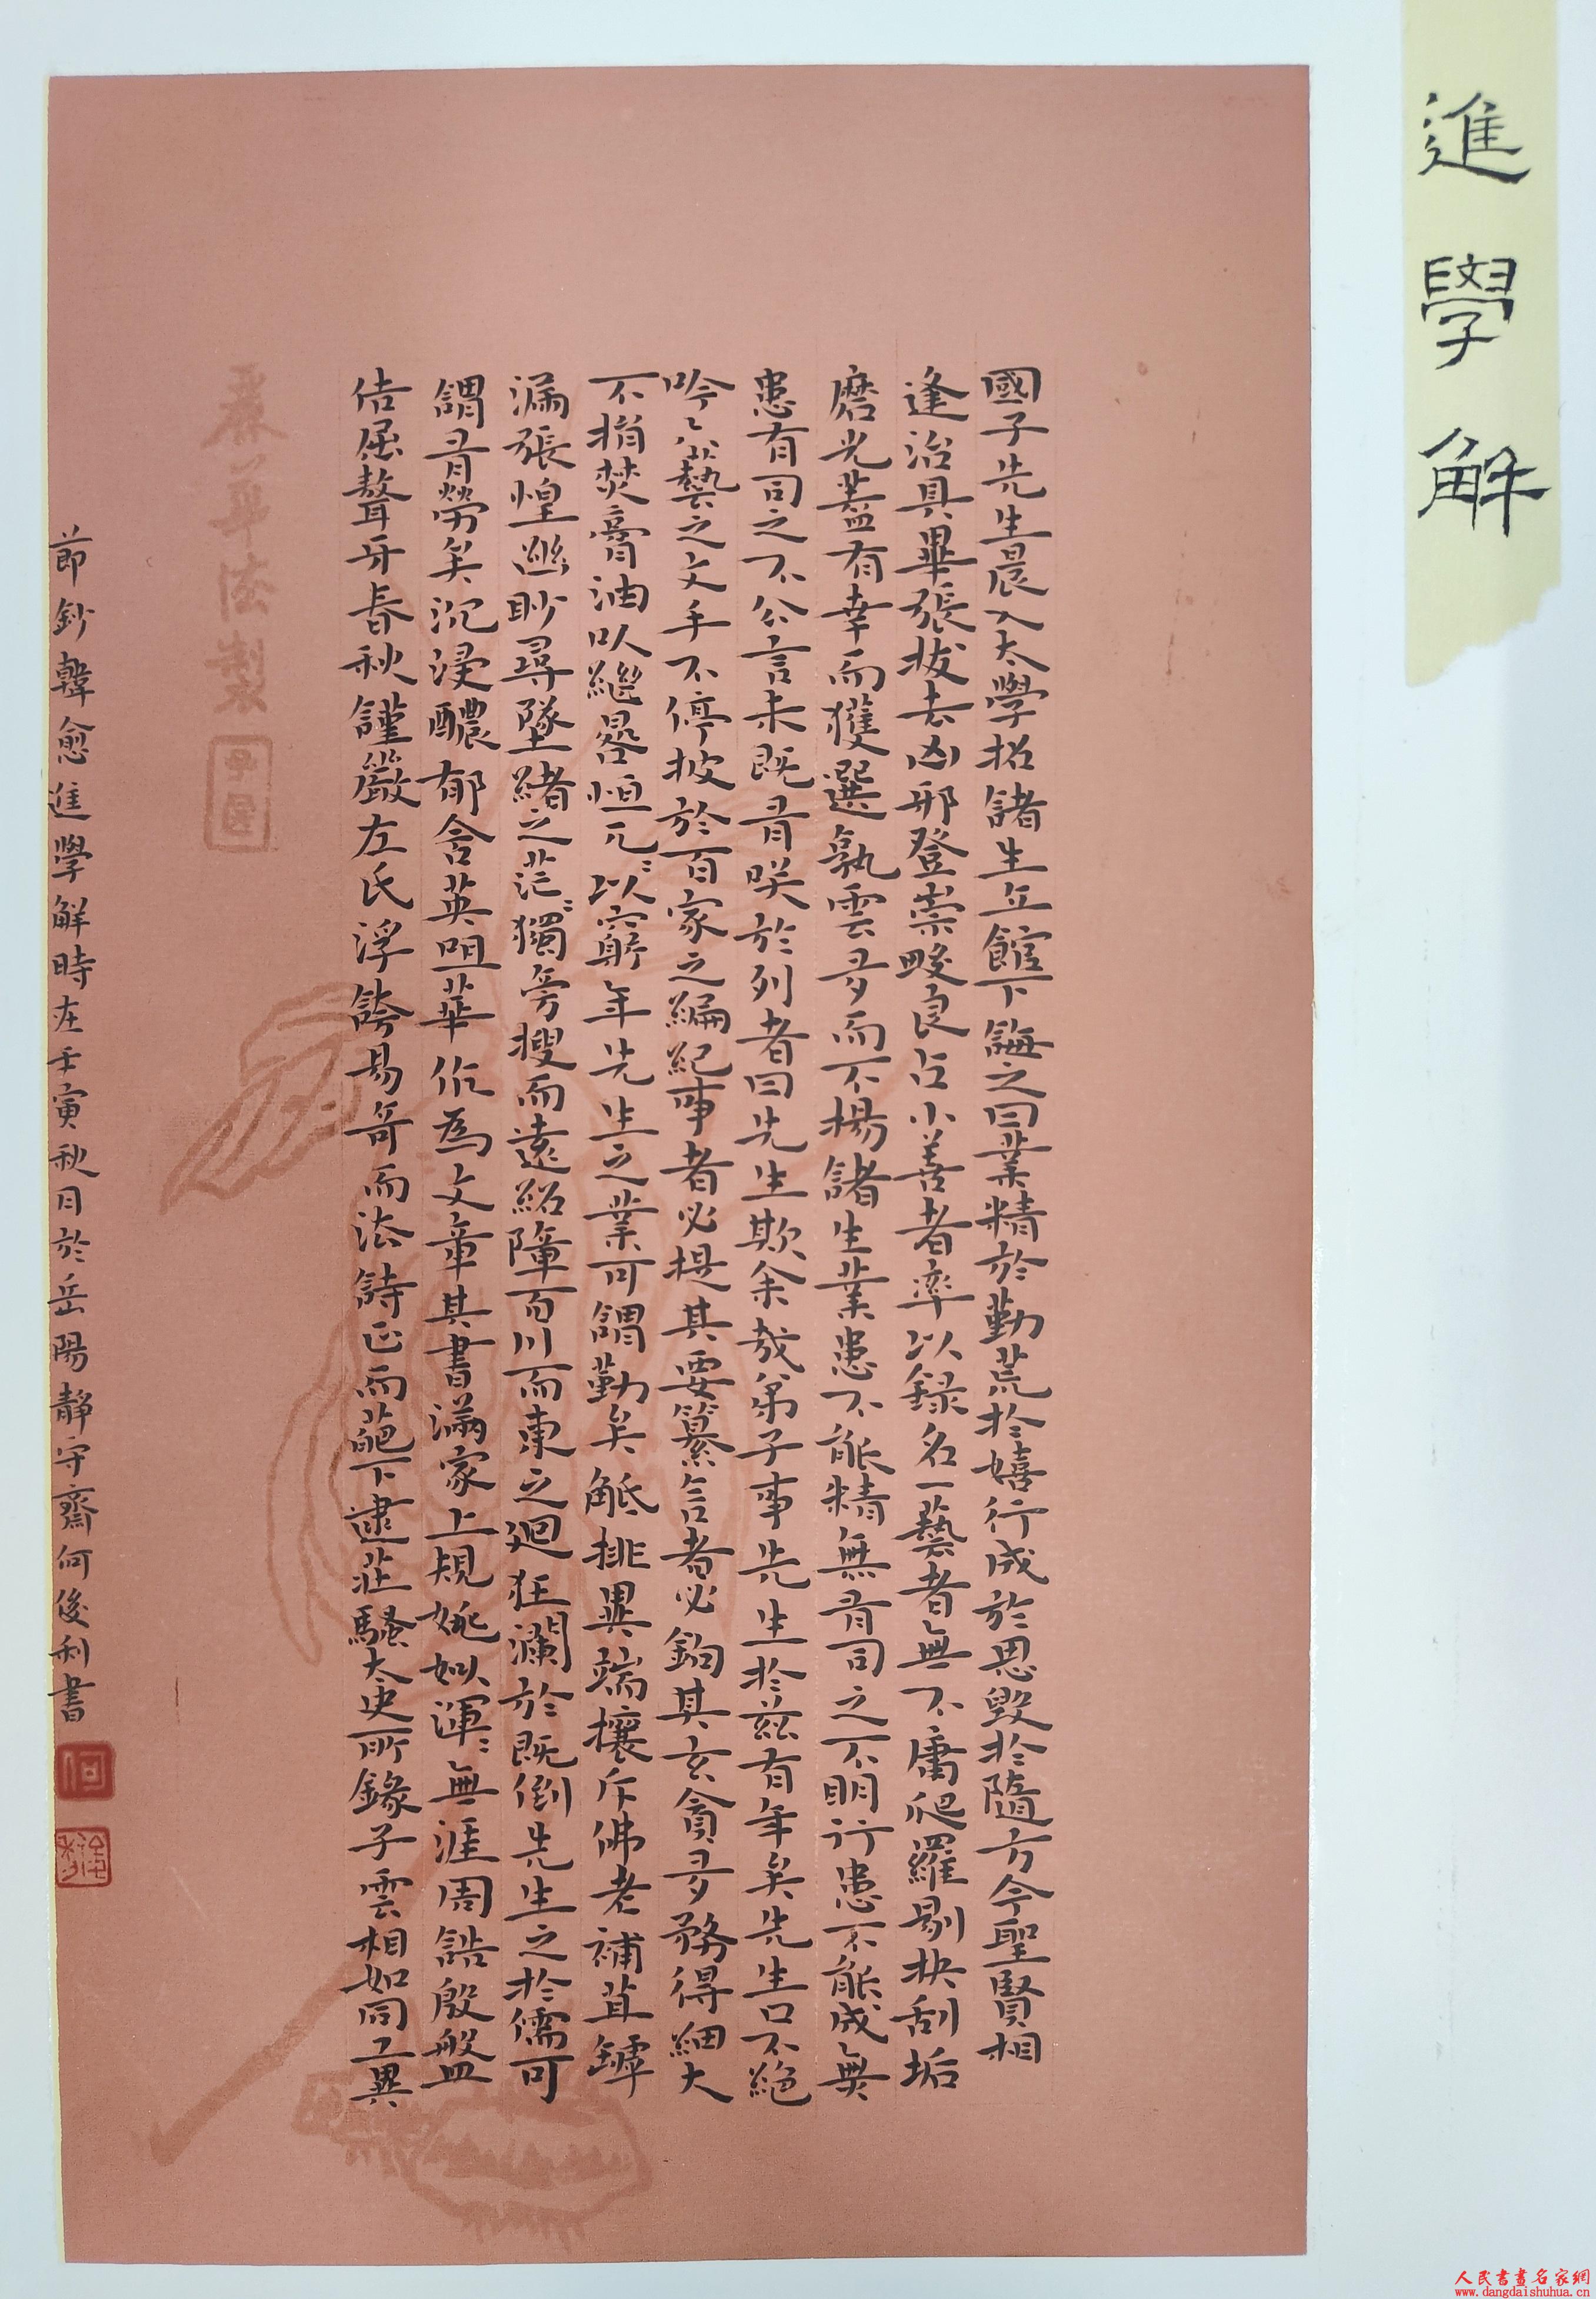 進學解
國子先生晨入太學招諸生立館下誨之曰業精於勤荒於嬉行成於思毀於隨方今聖賢相
逢治具畢張拔去凶邪登崇畯良占小善者率以録名一藝者無不庸爬羅剔抉刮垢
磨光蓋有幸而獲選孰雲多而不揚諸生業患不能精無有司之不明行患不能成無
患有司之不公言未既有咲於列者曰先生欺余哉弟子事先生於茲有年矣先生口不絕
吟於六藝之文手不停披於百家之編紀事者必提其要纂言者必鉤其玄貪多務得細大
不捐焚膏油以繼晷恒兀〻以窮年先生之業可謂勤矣觝排異端攘斥佛老補苴罅
漏張惶幽眇尋墜緒之茫〻獨旁搜而遠紹障百川而東之迴狂瀾於既倒先生之於儒可
謂有勞矣沉浸醲郁含英咀華作為文章其書滿家上規姚姒渾〻無涯周誥殷盤
佶屈聱牙春秋謹嚴左氏浮誇易奇而法詩正而葩下逮莊騷太史所錄子雲相如同工異
節鈔韓愈進學解時在壬寅秋月於岳陽靜守齋何俊利書
人民書畫名家網
www.dangdaishuhua.cn